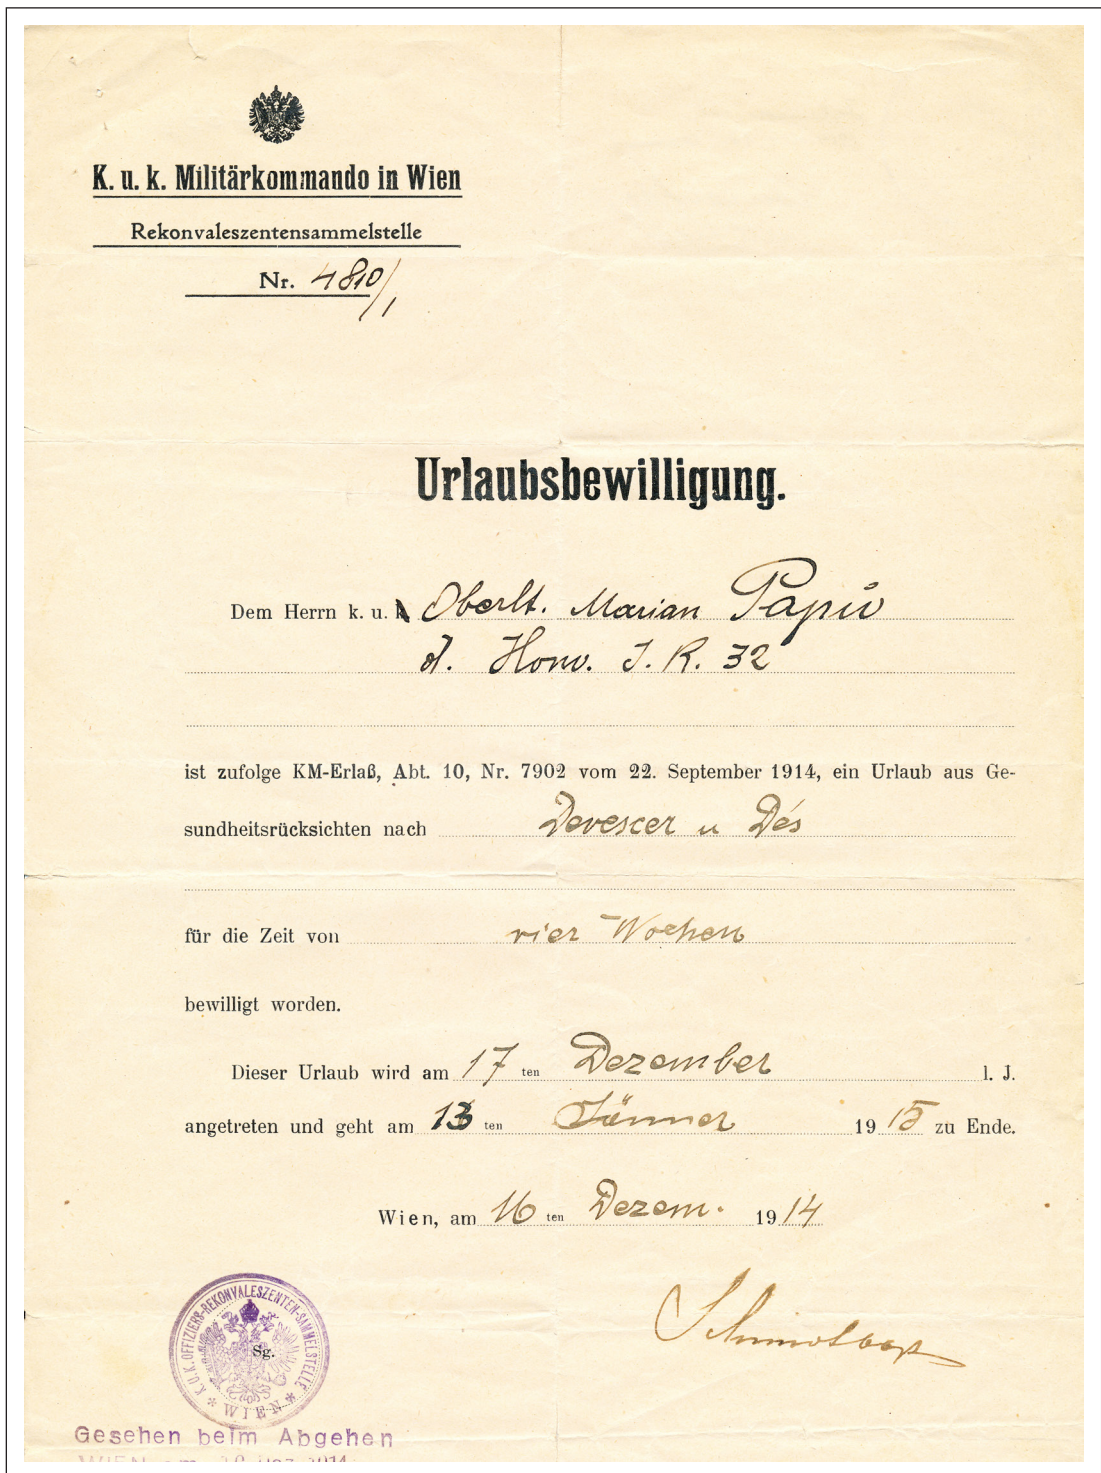 K. u. k. Militärkommando in Wien
Rekonvaleszentensammelstelle
Nr. 4810/1
Urlaubsbewilligung.
Dem Herrn k. u. k. Oberlt. Marian Papiu
d. Honv. I. R. 32
ist zufolge KM-Erlaß, Abt. 10, Nr. 7902 vom 22. September 1914, ein Urlaub aus Ge-
sundheitsrücksichten nach Devescer u Dés
für die Zeit von vier Wochen
bewilligt worden.
Dieser Urlaub wird am 17 ten Dezember l. J.
angetreten und geht am 13 ten Jänner 1915 zu Ende.
Wien, am 16 ten Dezem. 1914
K. U. K. OFFIZIERS-REKONVALESZENTEN-SAMMELSTELLE
Sg.
* WIEN *
Gesehen beim Abgehen
WIEN am Dez. 1914